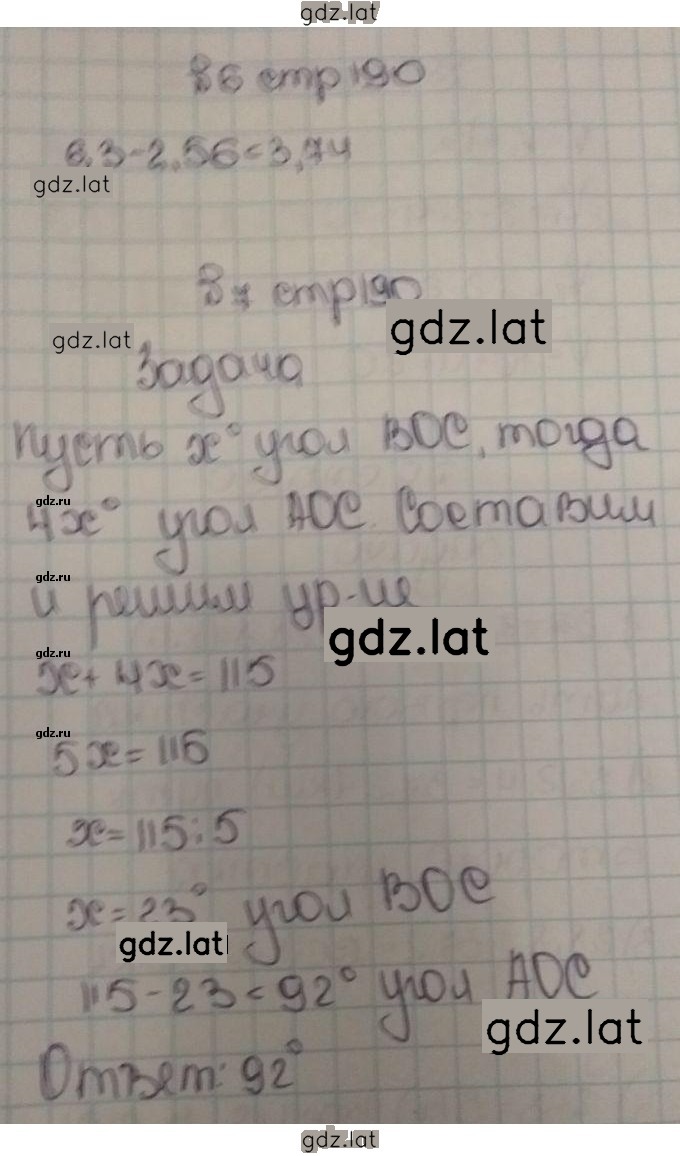 gdz.lat
В6 стр190
6.3-2,56=3,74
gdz.lat
В7 стр190
gdz.lat
gdz.lat
Задача
Пусть х° угол ВОС, тогда
gdz.ru
4х° угол АОС. Составим
gdz.ru
и решим ур-ие
gdz.lat
gdz.ru
х+4х=115
gdz.ru
5х=115
х=115:5
х=23° угол ВОС
gdz.lat
115-23=92° угол АОС
gdz.lat
Ответ: 92°
gdz.lat